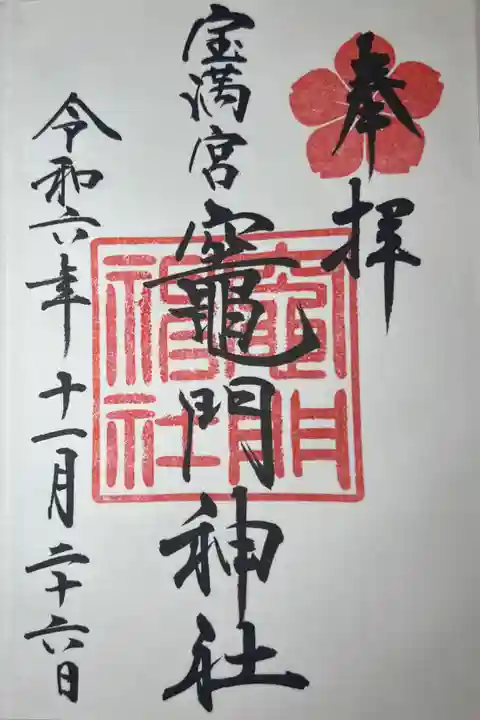 奉拝
宝満宮
竈門神社
竈門神社
令和六年十一月二十六日